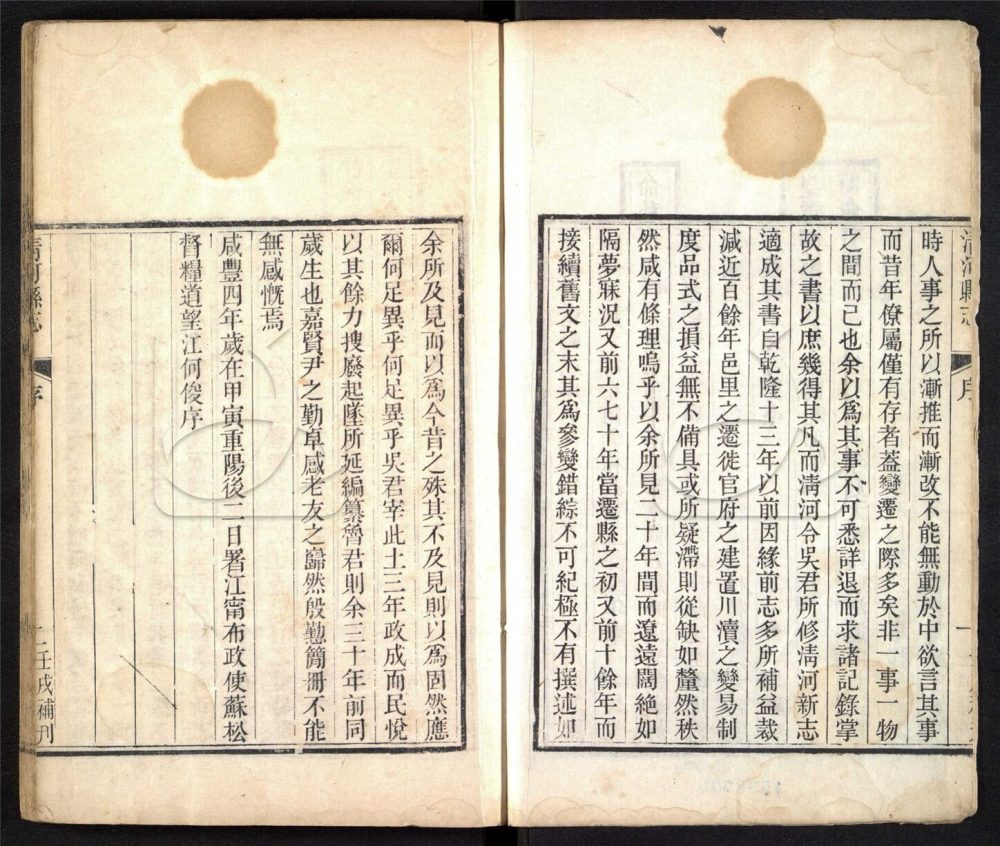 清河縣志
序
一
時人事之所以漸推而漸改不能無動於中欲言其事
而昔年僚屬僅有存者葢變遷之際多矣非一事一物
之間而已也余以爲其事不可悉詳退而求諸記錄掌
故之書以庶幾得其凡而淸河令吳君所修淸河新志
適成其書自乾隆十三年以前因緣前志多所補益裁
減近百餘年邑里之遷徙官府之建置川瀆之變易制
度品式之損益無不備具或所疑滯則從缺如釐然秩
然咸有條理嗚乎以余所見二十年間而遼遠闊絶如
隔夢寐況又前六七十年當遷縣之初又前十餘年而
接續舊文之末其爲參變錯綜不可紀極不有撰述如
余所及見而以爲今昔之殊其不及見則以爲固然應
爾何足異乎何足異乎吳君宰此土三年政成而民悅
以其餘力搜廢起墜所延編纂魯君則余三十年前同
歲生也嘉賢尹之勤卓感老友之巋然殷懃簡冊不能
無感慨焉
咸豐四年歲在甲寅重陽後二日署江甯布政使蘇松
督糧道望江何俊序
清河縣志
序
二壬戌補刋